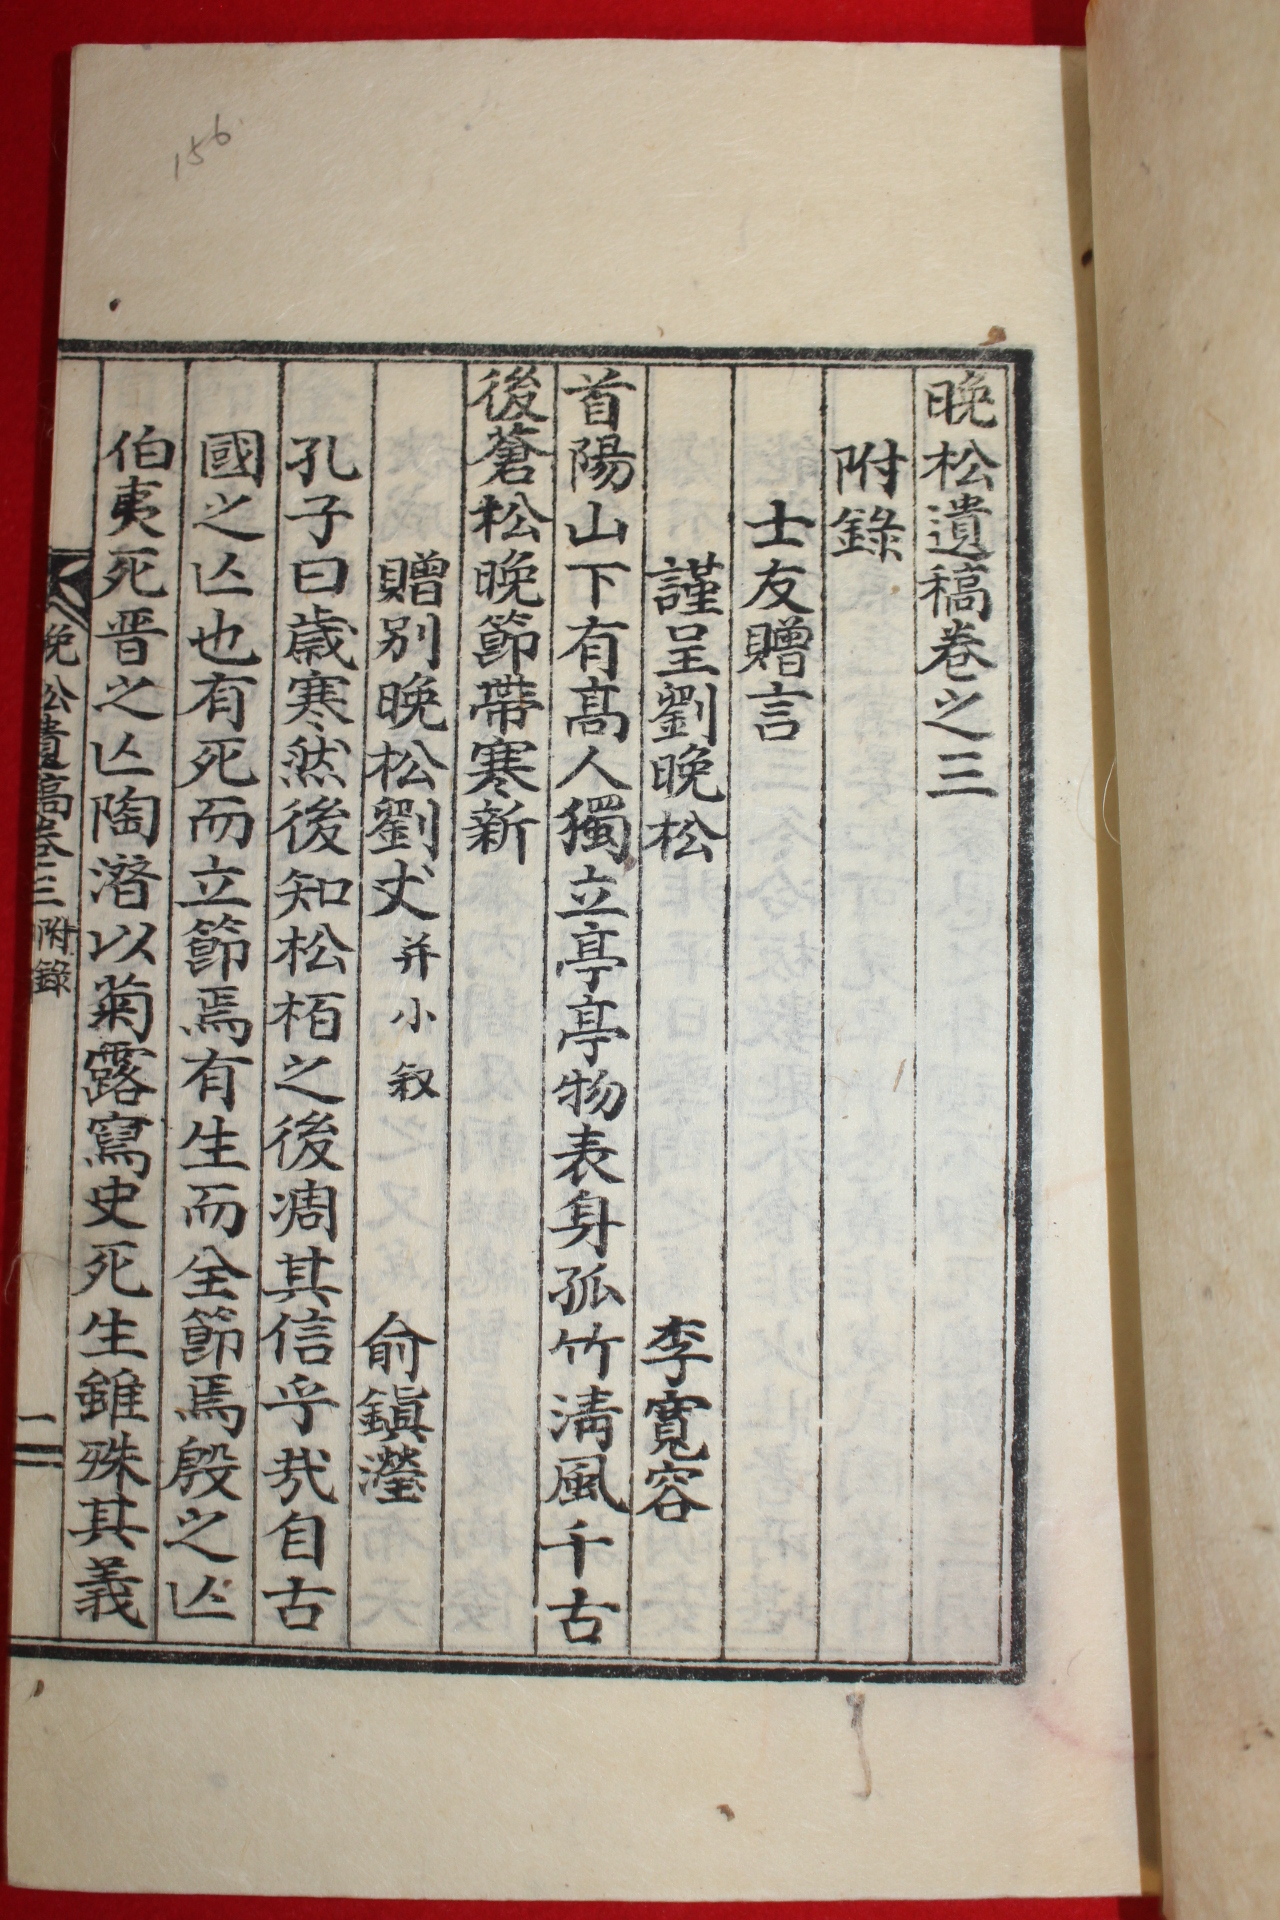 晩松遺稿卷之三
附錄
士友贈言
謹呈劉晩松 李寬容
首陽山下有高人獨立亭亭物表身孤竹淸風千古
後蒼松晩節帶寒新
贈別晩松劉丈 并小敘 俞鎭瀅
孔子曰歲寒然後知松栢之後凋其信乎哉自古
國之亾也有死而立節焉有生而全節焉殷之亾
伯夷死晋之亾陶潛以菊露寫史死生雖殊其義
晩松遺稿卷三 附錄 一
156